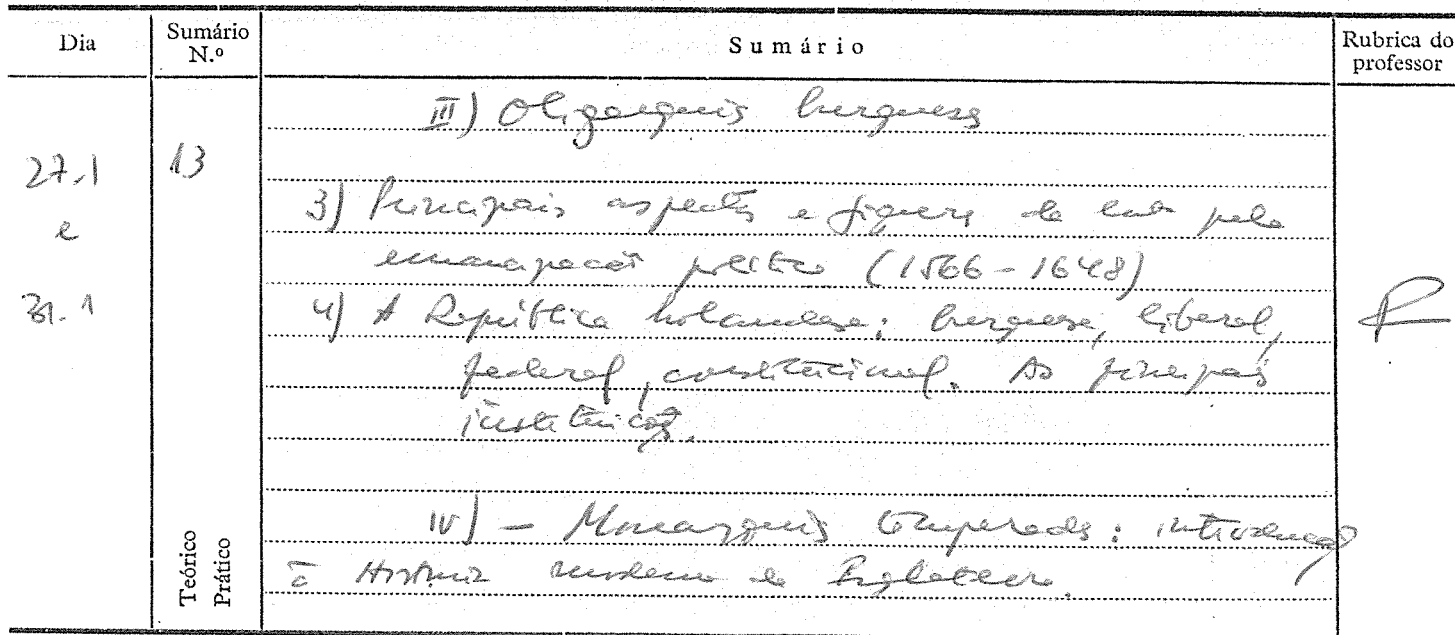 Dia
Sumário N.º
Sumário
Rubrica do professor
27.1 e 31.1
13
III) Oligarquia burguesa
3) Principais aspectos e figuras da luta pela
emancipação política (1566-1648)
4) A República holandesa: burguesa, liberal,
federal, constitucional. As principais
instituições.
IV) - Monarquia temperada: introdução
à História moderna da Inglaterra.
Teórico
Prático